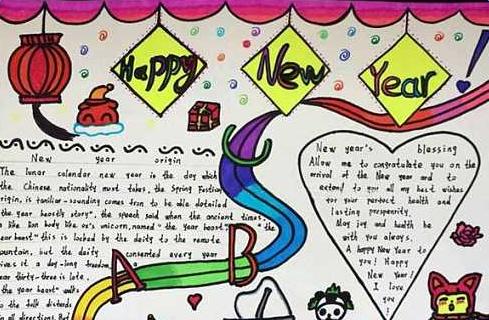 Happy New Year
New year origin
The lunar calendar new year is the day which
the Chinese nationality most takes, the Spring Festival
origin, is familiar-sounding comes from to be able detailed
the year beastly story", the speech said when the ancient times,
a like lion body like ox's unicorn, named "the year beast" "the
year beast" this is locked by the deity to the remote
mountain, but the deity consented every year
gives it a day-long freedom
year thirty-three is late,
the year beast" walks
to the folk disturbs
in all directions. But
A
B
C
New year's blessing
Allow me to congratulate you on the
arrival of the New year and to
extend to you all my best wishes
for your perfect health and
lasting prosperity.
May joy and health be
with you always.
A happy New Year to
you! Happy
New Year!
I love
you
!